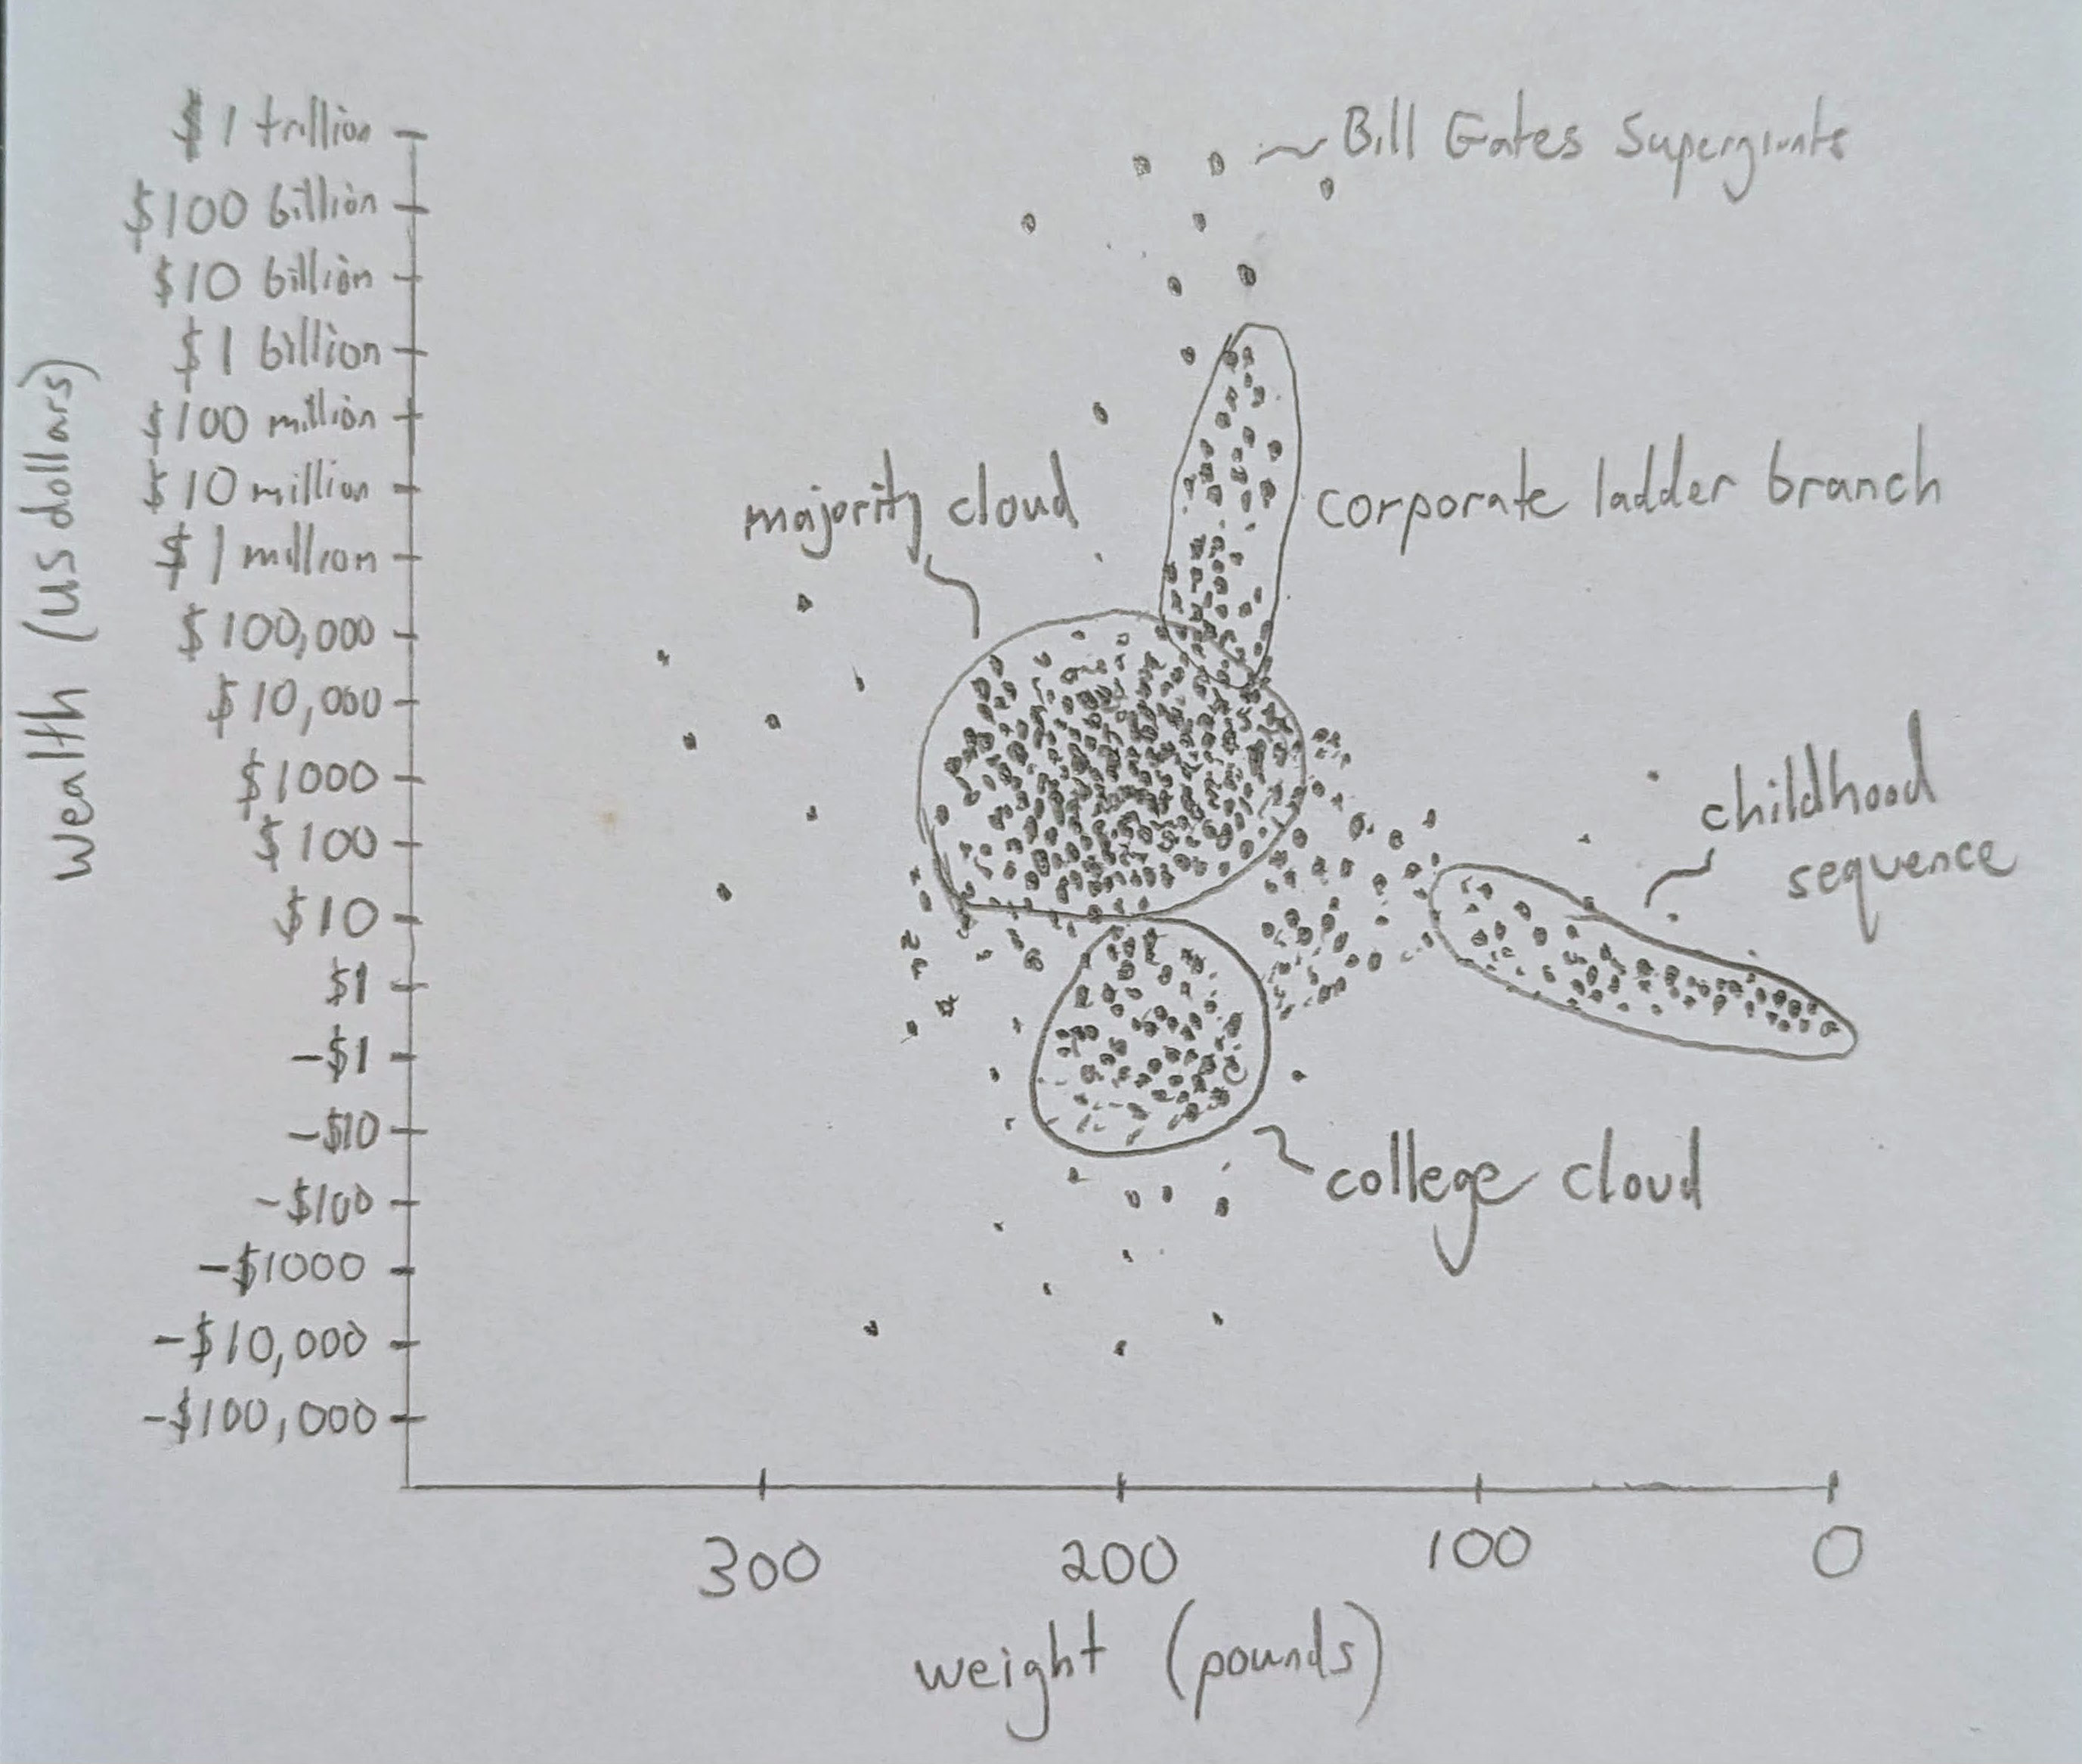 $1 trillion
Bill Gates Supergiants
$100 billion
$10 billion
$1 billion
$100 million
$10 million
majority cloud
corporate ladder branch
$1 million
wealth (us dollars)
$100,000
$10,000
$1000
childhood
sequence
$100
$10
$1
-$1
-$10
college cloud
-$100
-$1000
-$10,000
-$100,000
300 200 100 0
weight (pounds)